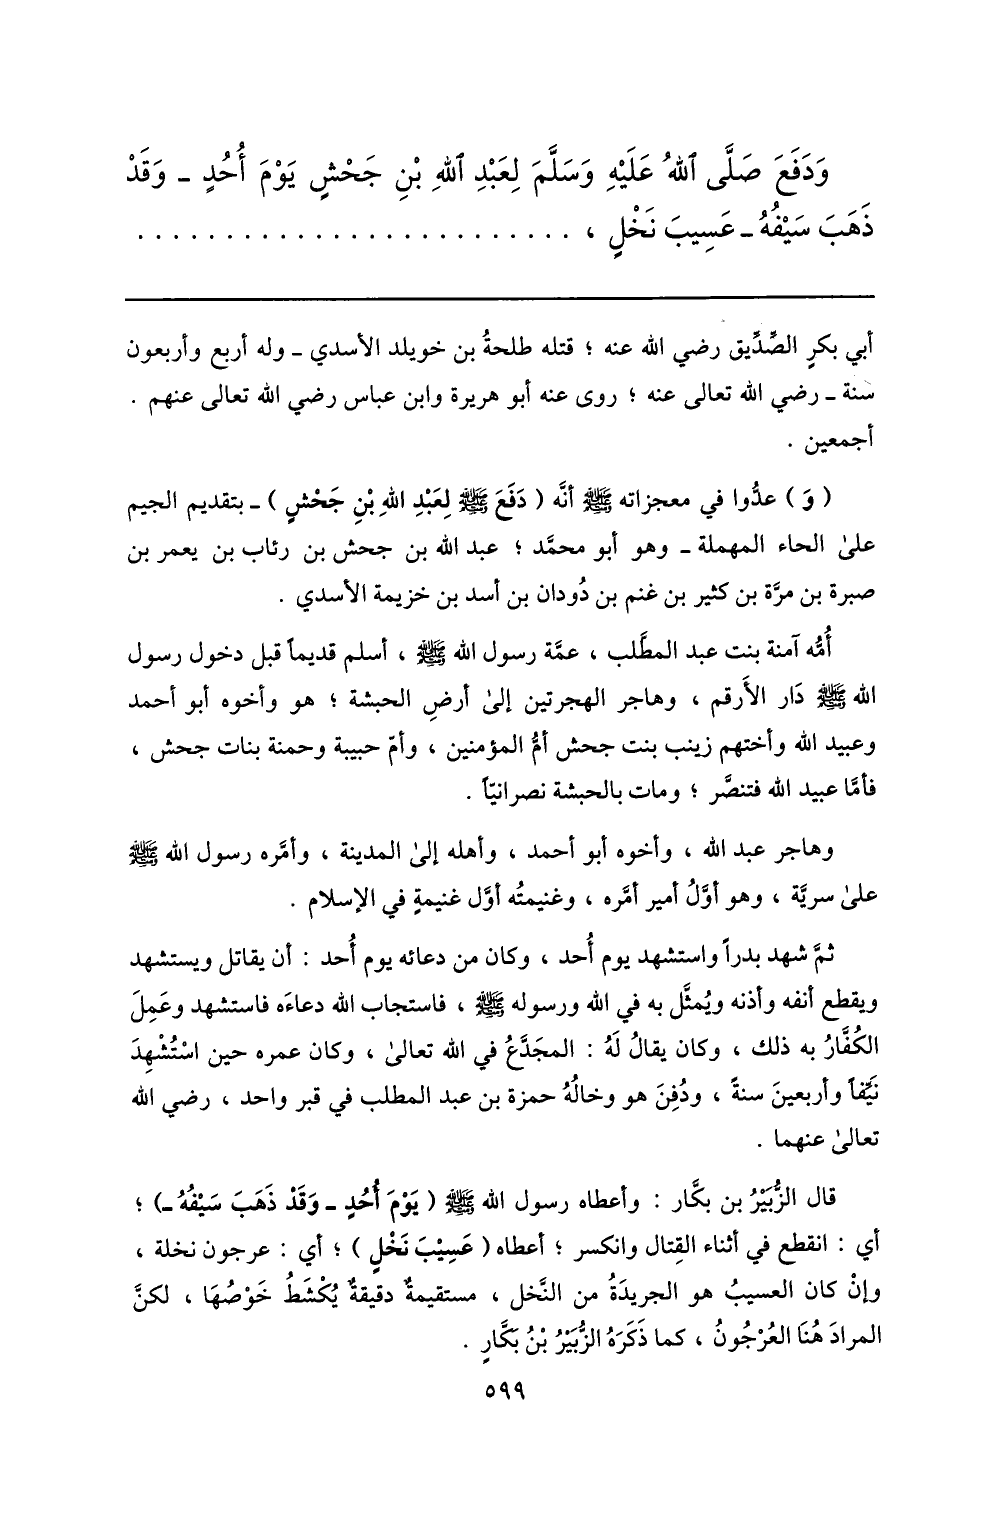 وَدَفَعَ صَلَّى ٱللهُ عَلَيْهِ وَسَلَّمَ لِعَبْدِ ٱللهِ بْنِ جَحْشٍ يَوْمَ أُحُدٍ ـ وَقَدْ
ذَهَبَ سَيْفُهُ ـ عَسِيبَ نَخْلٍ ، . . . . . . . . . . . . . . . . . . . . . . . . .
أبي بكرٍ الصِّدِّيق رضي الله عنه ؛ قتله طلحةُ بن خويلد الأسدي ـ وله أربع وأربعون
سنة ـ رضي الله تعالى عنه ؛ روى عنه أبو هريرة وابن عباس رضي الله تعالى عنهم .
أجمعين .
( وَ ) عدُّوا في معجزاته ﷺ أنَّه ( دَفَعَ ﷺ لِعَبْدِ اللهِ بْنِ جَحْشٍ ) ـ بتقديم الجيم
علىٰ الحاء المهملة ـ وهو أبو محمَّد ؛ عبد الله بن جحش بن رئاب بن يعمر بن
صبرة بن مرَّة بن كثير بن غنم بن دُودان بن أسد بن خزيمة الأسدي .
أُمُّه آمنة بنت عبد المطَّلب ، عمَّة رسول الله ﷺ ، أسلم قديماً قبل دخول رسول
الله ﷺ دَار الأَرقم ، وهاجر الهجرتين إلىٰ أرضِ الحبشة ؛ هو وأخوه أبو أحمد
وعبيد الله وأختهم زينب بنت جحش أمُّ المؤمنين ، وأمّ حبيبة وحمنة بنات جحش ،
فأمَّا عبيد الله فتنصَّر ؛ ومات بالحبشة نصرانيّاً .
وهاجر عبد الله ، وأخوه أبو أحمد ، وأهله إلىٰ المدينة ، وأمَّره رسول الله ﷺ
علىٰ سريَّة ، وهو أوَّلُ أمير أمَّره ، وغنيمتُه أوَّل غنيمةٍ في الإسلام .
ثمَّ شهد بدراً واستشهد يوم أُحد ، وكان من دعائه يوم أُحد : أن يقاتل ويستشهد
ويقطع أنفه وأذنه ويُمثَّل به في الله ورسوله ﷺ ، فاستجاب الله دعاءَه فاستشهد وعَمِلَ
الكُفَّارُ به ذلك ، وكان يقالُ لَهُ : المجَدَّعُ في الله تعالىٰ ، وكان عمره حين اسْتُشْهِدَ
نَيِّفاً وأربعينَ سنةً ، ودُفِنَ هو وخالُهُ حمزة بن عبد المطلب في قبر واحد ، رضي الله
تعالىٰ عنهما .
قال الزُّبَيْرُ بن بكَّار : وأعطاه رسول الله ﷺ ( يَوْمَ أُحُدٍ ـ وَقَدْ ذَهَبَ سَيْفُهُ ـ) ؛
أي : انقطع في أثناء القِتال وانكسر ؛ أعطاه ( عَسِيْبَ نَخْلٍ ) ؛ أي : عرجون نخلة ،
وإنْ كان العسيبُ هو الجريدَةُ من النَّخل ، مستقيمةٌ دقيقةٌ يُكْشَطُ خَوْصُهَا ، لكنَّ
المرادَ هُنَا العُرْجُونُ ، كما ذَكَرَهُ الزُّبَيْرُ بْنُ بَكَّارٍ .
٥٩٩